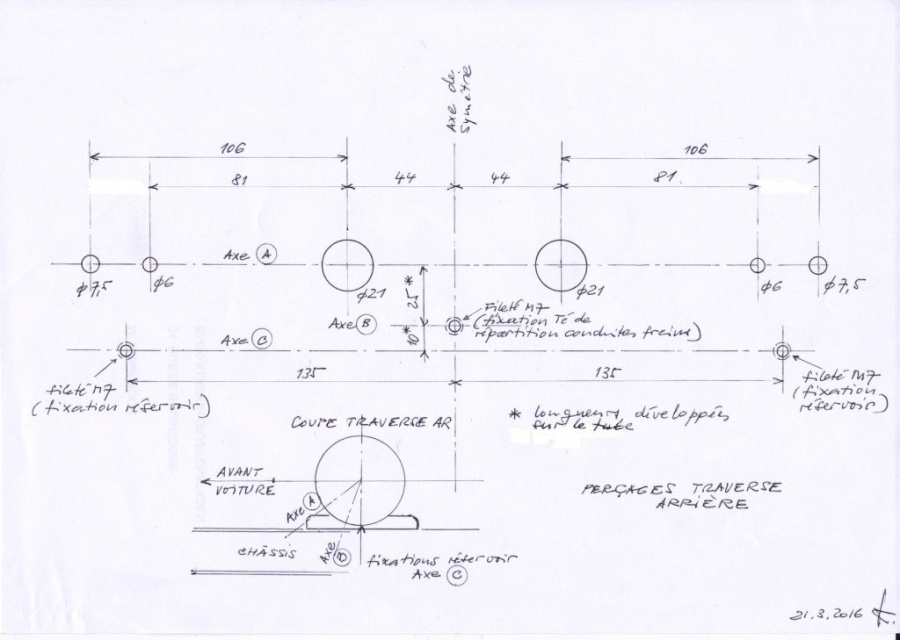 Axe de
Symétrie
106
106
81
44
44
81
Axe A
φ7,5
φ6
φ21
25*
φ21
φ6
φ7,5
Axe B
Fileté M7
(fixation Té de
répartition conduites freins)
Axe C
10*
135
135
fileté M7
(fixation réservoir)
fileté M7
(fixation
réservoir)
* longueurs développées
sur le tube
COUPE TRAVERSE AR
AVANT
VOITURE
PERÇAGES TRAVERSE
ARRIÈRE
Axe A
CHÂSSIS
Axe B
fixations réservoir
Axe C
21.3.2016